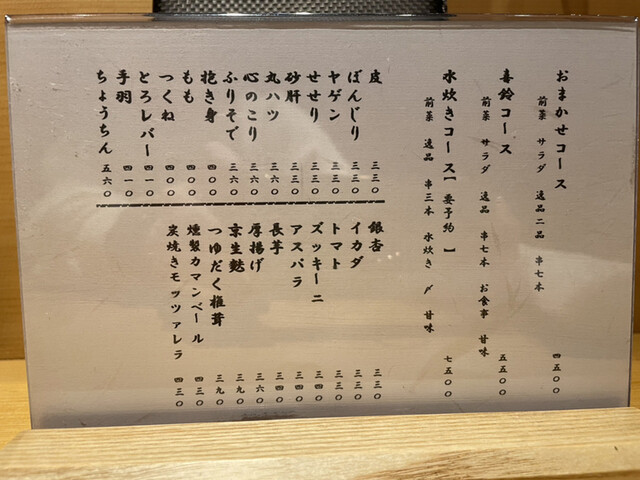 おまかせコース 四五〇〇
前菜 サラダ 逸品二品 串七本
喜鈴コース 五五〇〇
前菜 サラダ 逸品 串七本 お食事 甘味
水炊きコース【要予約】 七五〇〇
前菜 逸品 串三本 水炊き 〆 甘味
皮 三三〇
ぼんじり 三三〇
ヤゲン 三三〇
せせり 三三〇
砂肝 三三〇
丸ハツ 三六〇
心のこり 三六〇
ふりそで 三六〇
抱き身 四〇〇
もも 四〇〇
つくね 四〇〇
とろレバー 四一〇
手羽 四一〇
ちょうちん 五六〇
銀杏 三三〇
イカダ 三三〇
トマト 三三〇
ズッキーニ 三四〇
アスパラ 三四〇
長芋 三四〇
厚揚げ 三六〇
京生麩 三九〇
つゆだく椎茸 三九〇
燻製カマンベール 四三〇
炭焼きモッツァレラ 四三〇